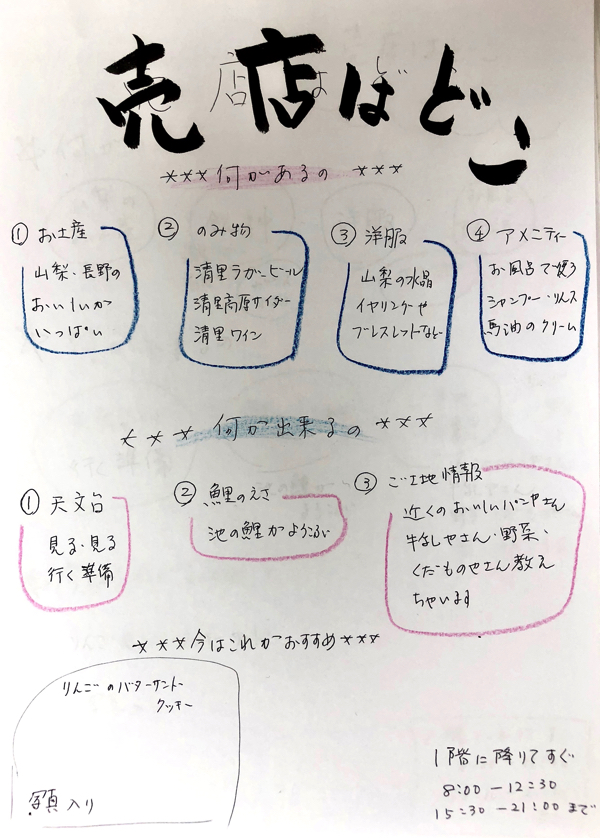 売店はどこ
*** 何があるの ***
① お土産
山梨・長野の
おいしいが
いっぱい
② のみ物
清里ラガービール
清里高原サイダー
清里ワイン
③ 洋服
山梨の水晶
イヤリングや
ブレスレットなど
④ アメニティー
お風呂で使う
シャンプー・リンス
馬油のクリーム
*** 何が出来るの ***
① 天文台
見る・見る
行く準備
② 鯉のえさ
池の鯉がよろこぶ
③ ご土地情報
近くのおいしいパンやさん
牛なしやさん・野菜・
くだものやさん教え
ちゃいます
***今はこれがおすすめ***
りんごのバターサンド
クッキー
写真入り
1階に降りてすぐ
8:00-12:30
15:30-21:00まで